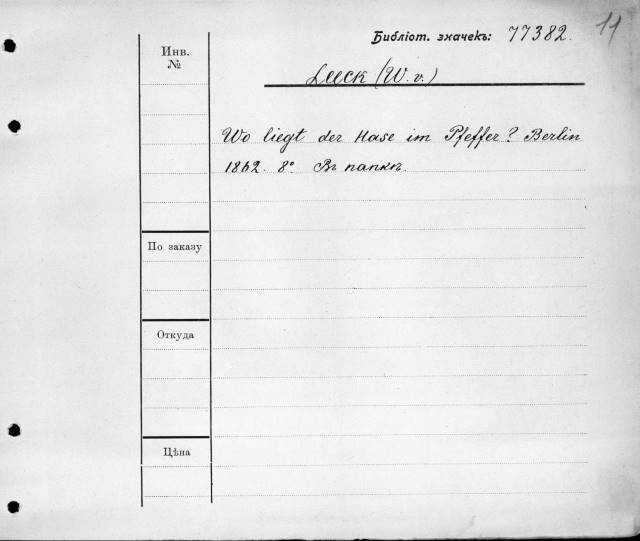 Библіот. значекъ: 77382. 11
Инв.
№
Leeck (W. v.)
Wo liegt der Hase im Pfeffer? Berlin
1862. 8° Въ папкѣ.
По заказу
Откуда
Цѣна